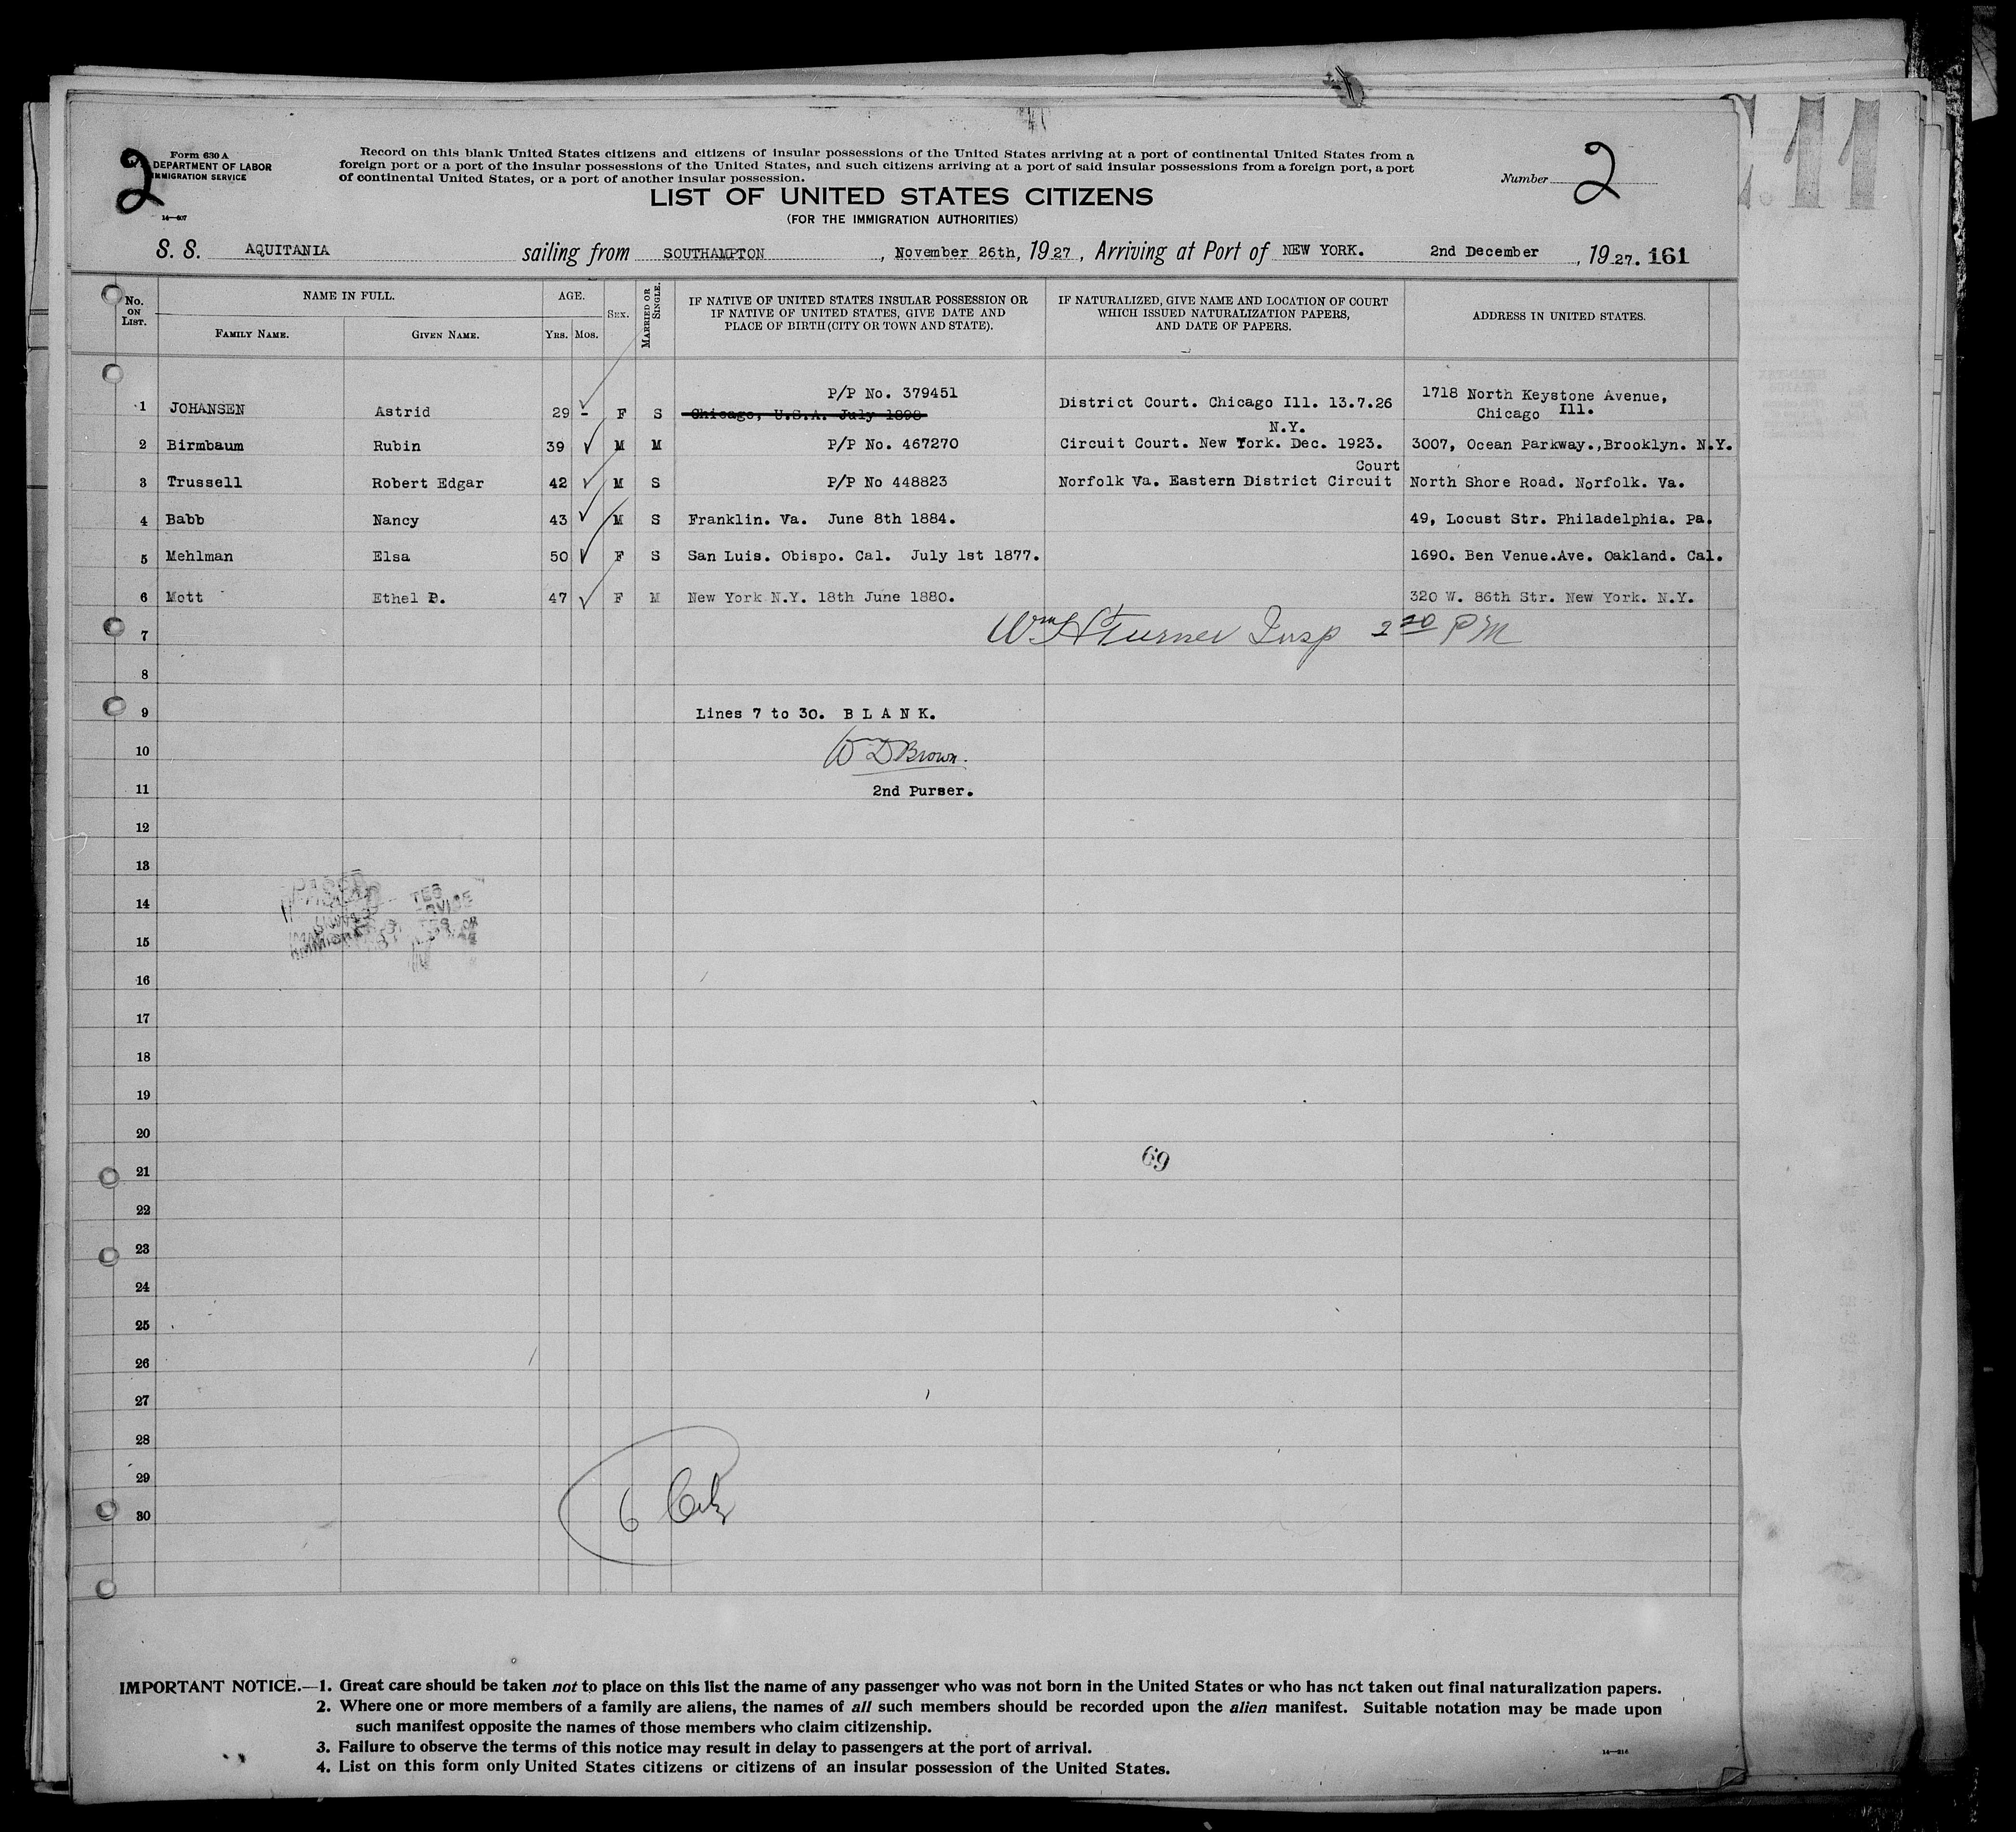 2
Form 630 A
DEPARTMENT OF LABOR
IMMIGRATION SERVICE
14—607
Record on this blank United States citizens and citizens of insular possessions of the United States arriving at a port of continental United States from a
foreign port or a port of the insular possessions of the United States, and such citizens arriving at a port of said insular possessions from a foreign port, a port
of continental United States, or a port of another insular possession.
Number 2
LIST OF UNITED STATES CITIZENS
(FOR THE IMMIGRATION AUTHORITIES)
S. S. AQUITANIA sailing from SOUTHAMPTON, November 26th, 1927, Arriving at Port of NEW YORK. 2nd December, 1927. 161
No. ON LIST. NAME IN FULL. FAMILY NAME. GIVEN NAME. AGE. YRS. MOS. SEX. MARRIED OR SINGLE. IF NATIVE OF UNITED STATES INSULAR POSSESSION OR IF NATIVE OF UNITED STATES, GIVE DATE AND PLACE OF BIRTH (CITY OR TOWN AND STATE). IF NATURALIZED, GIVE NAME AND LOCATION OF COURT WHICH ISSUED NATURALIZATION PAPERS, AND DATE OF PAPERS. ADDRESS IN UNITED STATES.
P/P No. 379451
1 JOHANSEN Astrid 29 - F S Chicago, U.S.A. July 1898 District Court. Chicago Ill. 13.7.26 1718 North Keystone Avenue, Chicago Ill.
N.Y.
2 Birmbaum Rubin 39 M M P/P No. 467270 Circuit Court. New York. Dec. 1923. 3007, Ocean Parkway.,Brooklyn. N.Y.
Court
3 Trussell Robert Edgar 42 M S P/P No 448823 Norfolk Va. Eastern District Circuit North Shore Road. Norfolk. Va.
4 Babb Nancy 43 M S Franklin. Va. June 8th 1884. 49, Locust Str. Philadelphia. Pa.
5 Mehlman Elsa 50 F S San Luis. Obispo. Cal. July 1st 1877. 1690. Ben Venue.Ave. Oakland. Cal.
6 Mott Ethel P. 47 F M New York N.Y. 18th June 1880. 320 W. 86th Str. New York. N.Y.
7 Wm H Turner Insp 2 20 PM
8
9 Lines 7 to 30. B L A N K.
10 W D Brown.
11 2nd Purser.
12
13
PASSED
14
15
16
17
18
19
20
21
69
22
23
24
25
26
27
28
29
30
6
IMPORTANT NOTICE.—1. Great care should be taken not to place on this list the name of any passenger who was not born in the United States or who has not taken out final naturalization papers.
2. Where one or more members of a family are aliens, the names of all such members should be recorded upon the alien manifest. Suitable notation may be made upon
such manifest opposite the names of those members who claim citizenship.
3. Failure to observe the terms of this notice may result in delay to passengers at the port of arrival.
4. List on this form only United States citizens or citizens of an insular possession of the United States.